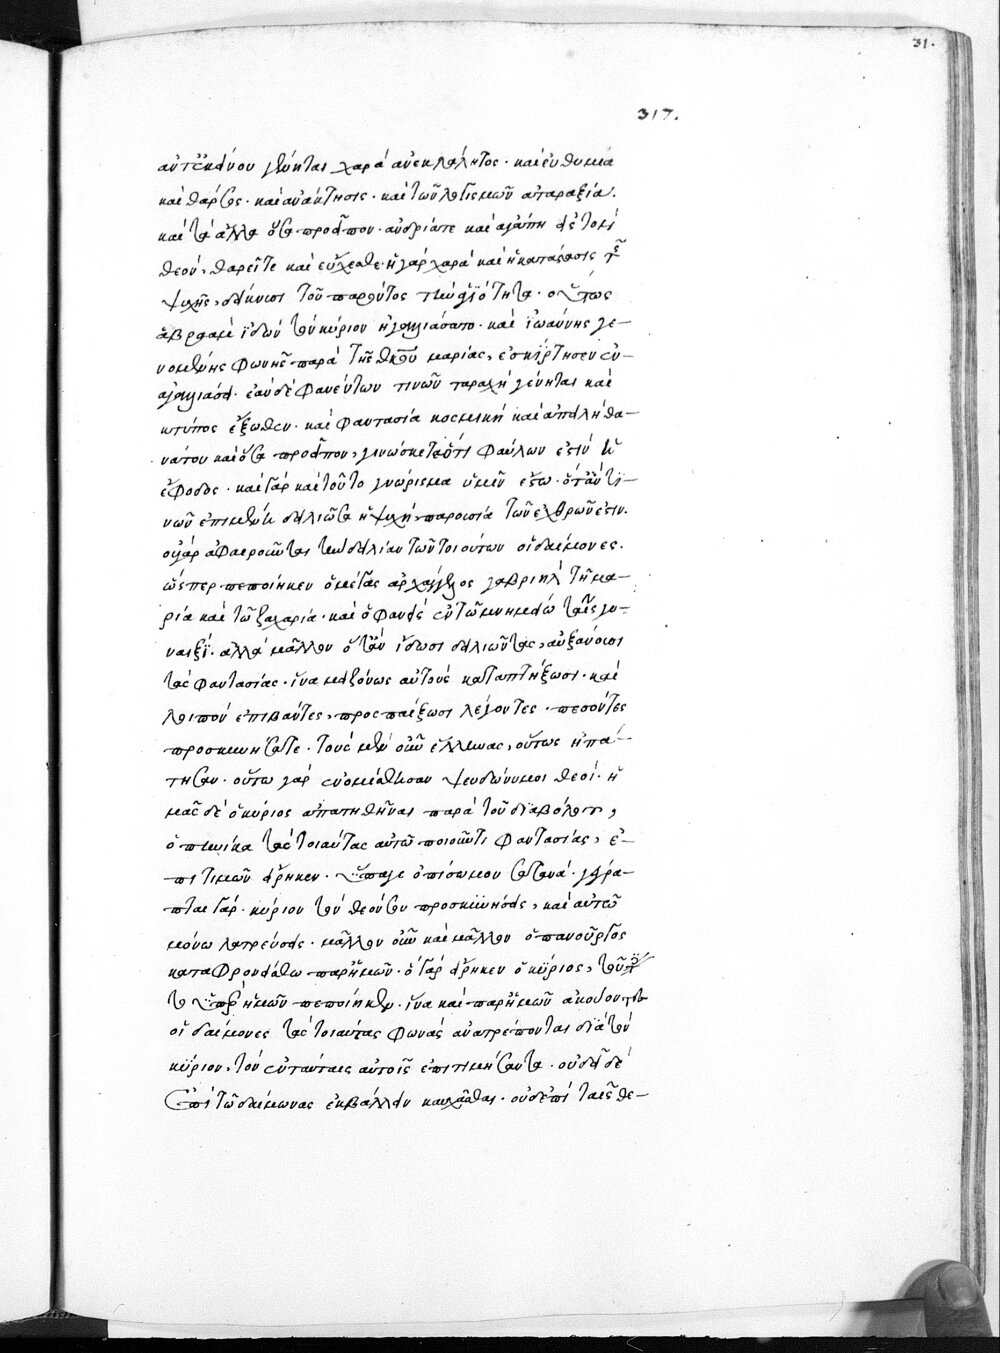 31.
317.
αὐτ ἐκείνου γίνηται χαρὰ ἀνεκλάλητος· καὶ εὐθυμία
καὶ θάρσος· καὶ ἀνάκτησις· καὶ τῶν λογισμῶν ἀταραξία·
καὶ τὰ ἄλλα ὅσα προεῖπον· ἀνδρία τε καὶ ἀγάπη εἰς τὸν
θεόν, θαρεῖτε καὶ εὔχεσθε· ἡ γὰρ χαρὰ καὶ ἡ κατάστασις τῆς
ψυχῆς, δείκνυσι τοῦ παρόντος τὴν ἁγιότητα· οὕτως
ἀβραὰμ ἰδὼν τὸν κύριον ἠγαλλιάσατο· καὶ ἰωάννης γε–
νομένης φωνῆς παρὰ τῆς θκου μαρίας, ἐσκίρτησεν ἐν
ἀγαλλιάσει· ἐὰν δὲ φανέντων τινῶν ταραχὴ γένηται καὶ
κτύπος ἔξωθεν· καὶ φαντασία κοσμικὴ καὶ ἀπειλὴ θα–
νάτου καὶ ὅσα προεῖπον, γινώσκετε ὅτι φαύλων ἐστὶν ἡ
ἔφοδος· καὶ γὰρ καὶ τοῦτο γνώρισμα ὑμῖν ἔστω· ὅταν ἐπι–
νῶν ἐπιμένῃ δειλιῶσα ἡ ψυχὴ παρουσία τῶν ἐχθρῶν ἐστιν·
οὐ γὰρ ἀφαιροῦνται τὴν δειλίαν τῶν τοιούτων οἱ δαίμονες·
ὥσπερ πεποίηκεν ὁ μέγας ἀρχάγγελος γαβριὴλ τῇ μα–
ρία καὶ τῷ ζαχαρία· καὶ ὁ φανεὶς ἐν τῷ μνημείῳ ταῖς γυ–
ναιξὶ· ἀλλὰ μᾶλλον ὅταν ἴδωσι δειλιῶντας, αὐξάνουσι
τὰς φαντασίας· ἵνα μειζόνως αὐτοὺς καταπτήξωσι· καὶ
λοιπὸν ἐπιβάντες, προσπαίξωσι λέγοντες· πεσόντες
προσκυνήσατε· τοὺς μὲν οὖν ἕλληνας, οὕτως ἠπά–
τησαν· οὕτω γὰρ ἐνομίσθησαν ψευδώνυμοι θεοί· ἡ
μᾶς δὲ ὁ κύριος ἀπατηθῆναι παρὰ τοῦ διαβόλου,
ὁπηνίκα τὰς τοιαύτας αὐτῷ ποιοῦντι φαντασίας, ἐ–
πιτιμῶν εἴρηκεν· ὕπαγε ὀπίσω μου σατανᾶ· γέγρα–
πται γάρ· κύριον τὸν θεόν σου προσκυνήσεις, καὶ αὐτῷ
μόνω λατρεύσεις· μᾶλλον οὖν καὶ μᾶλλον ὁ πανοῦργος
καταφρονείσθω παρ' ἡμῶν· ὃ γὰρ εἴρηκεν ὁ κύριος, τοῦ
το ὑπὲρ ἡμῶν πεποίηκεν· ἵνα καὶ παρ' ἡμῶν ἀκούοντες
οἱ δαίμονες τὰς τοιαύτας φωνὰς ἀνατρέπονται διὰ τὸν
κύριον, τὸν ἐν ταύταις αὐτοῖς ἐπιτιμήσαντα· οὐ δεῖ δὲ
ἐπὶ τῷ δαίμονας ἐκβάλλειν καυχᾶσθαι· οὐδ' ἐπὶ ταῖς θε–